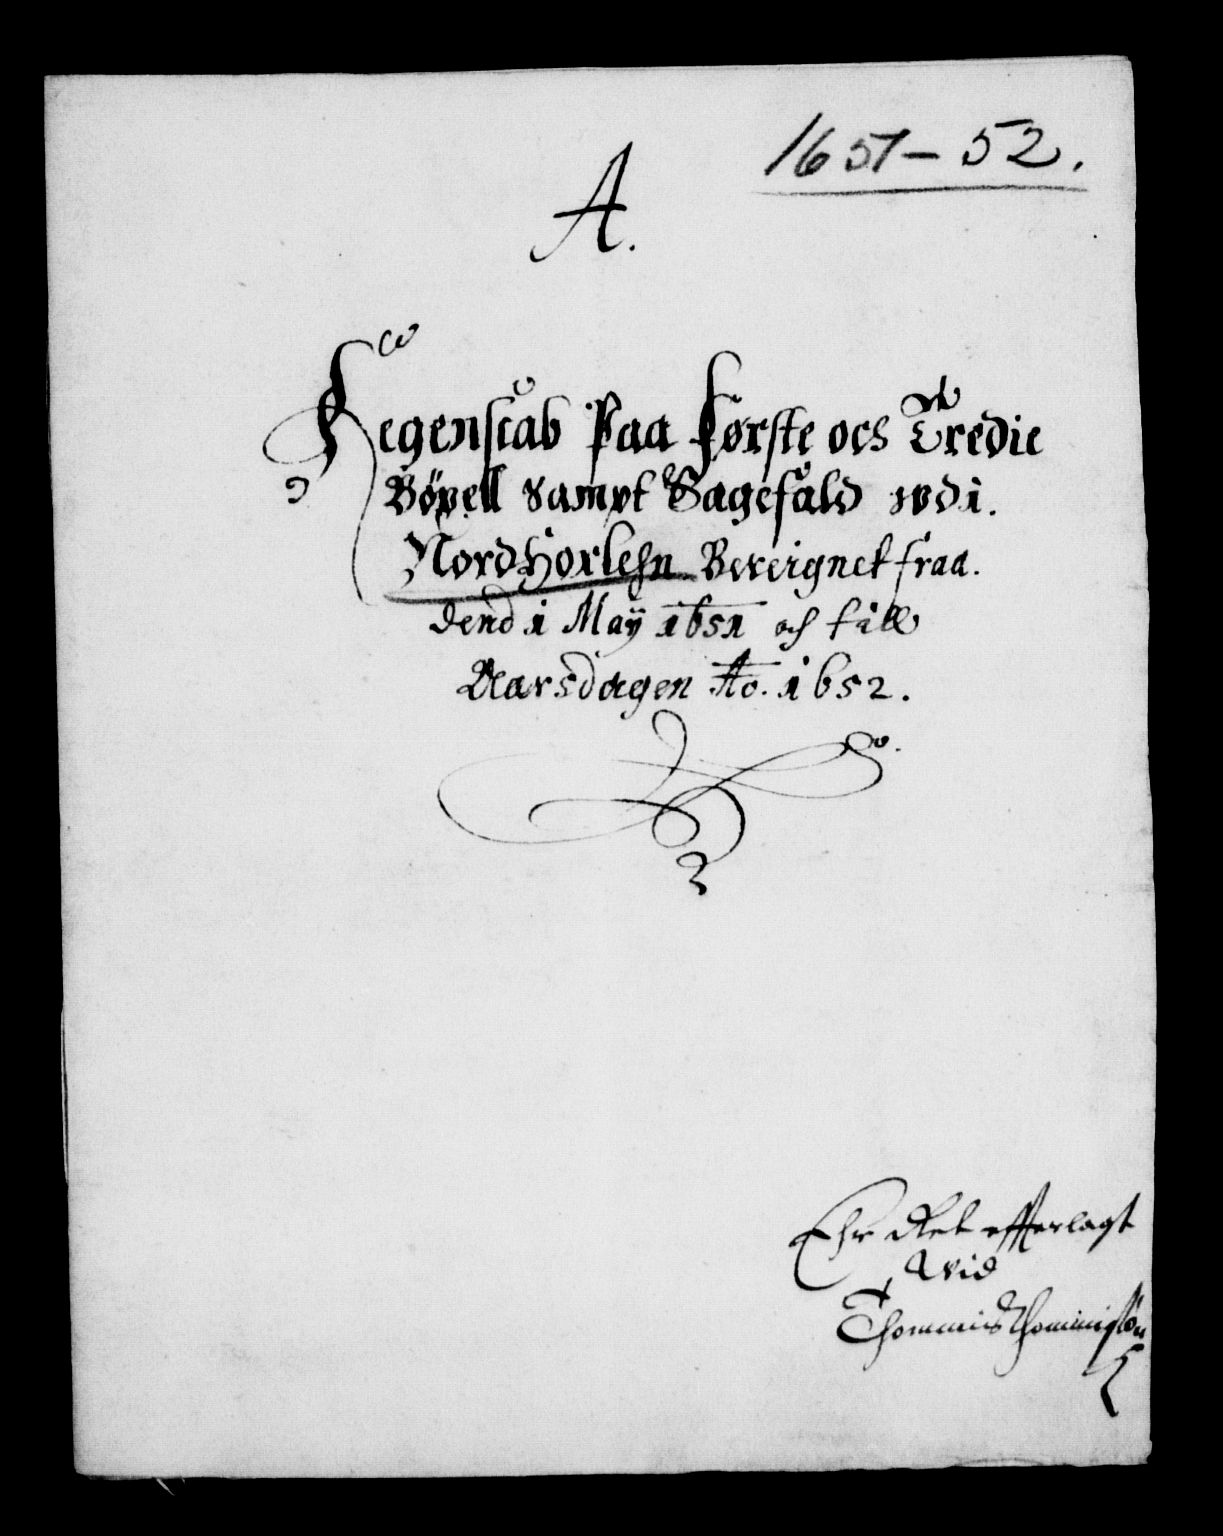 1651-52.
A.
Regenscab Paa Første och Tredie
Bøxell Sampt Sagefald udi.
Nordhorlehn Bereignet fraa.
dend 1 May 1651 och till
Aarsdagen Ao. 1652.
Ehr Ret efferlagt
Thommis Thommisøn